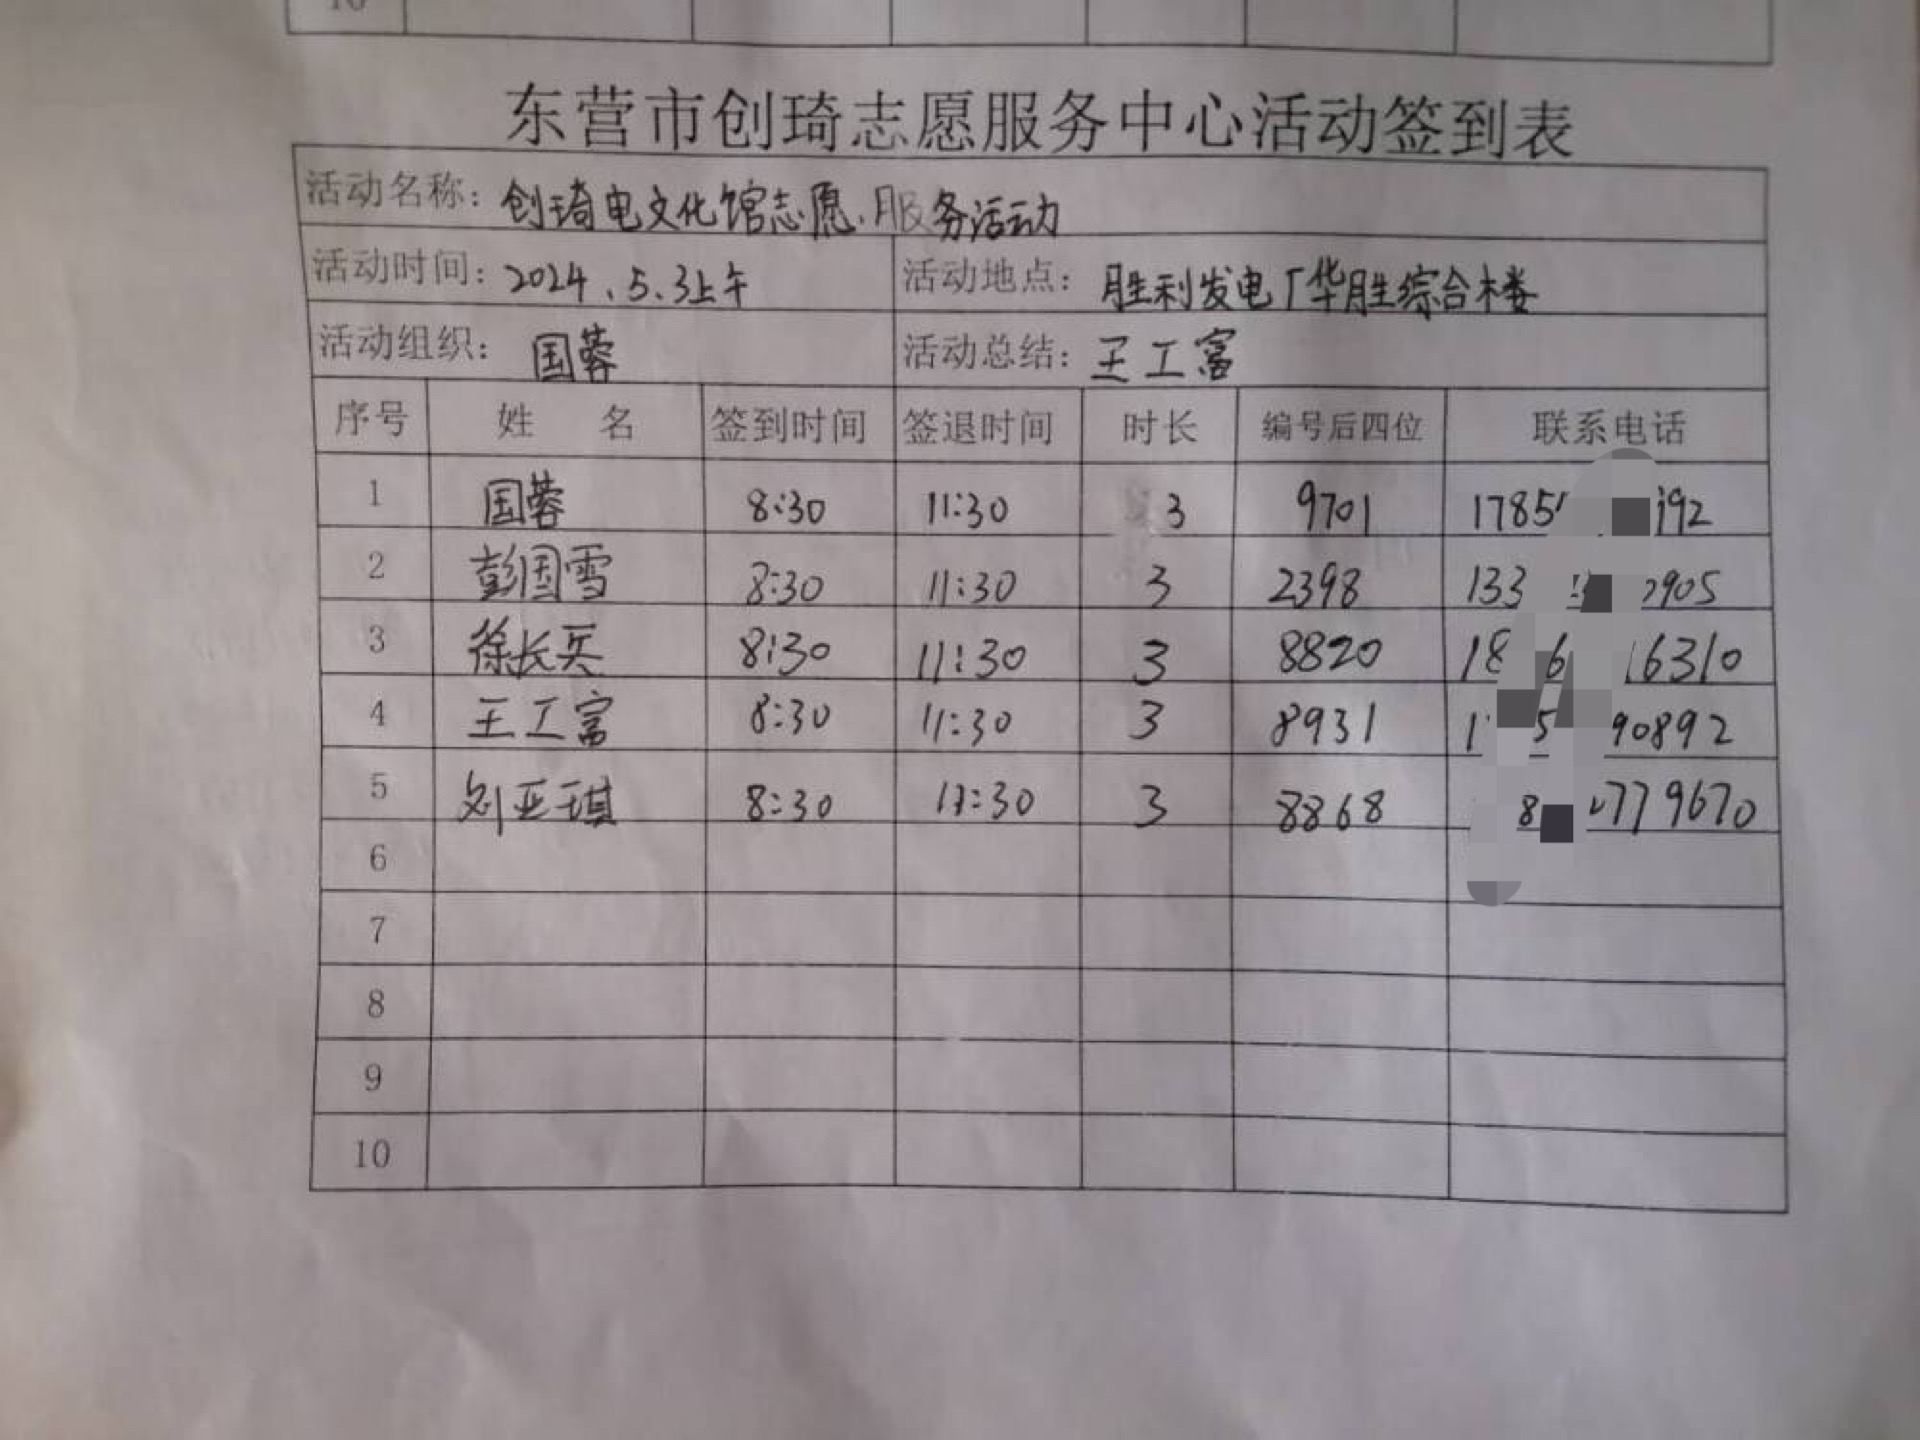 10
东营市创琦志愿服务中心活动签到表
活动名称：创琦电文化馆志愿服务活动
活动时间：2024.5.3上午 活动地点：胜利发电厂华胜综合楼
活动组织：国蓉 活动总结：王工富
序号 姓 名 签到时间 签退时间 时长 编号后四位 联系电话
1 国蓉 8:30 11:30 3 9701 1785 192
2 彭国雪 8:30 11:30 3 2398 133 905
3 徐长兵 8:30 11:30 3 8820 18 6 16310
4 王工富 8:30 11:30 3 8931 1 5 90892
5 刘亚琪 8:30 11:30 3 8868 8 779670
6
7
8
9
10